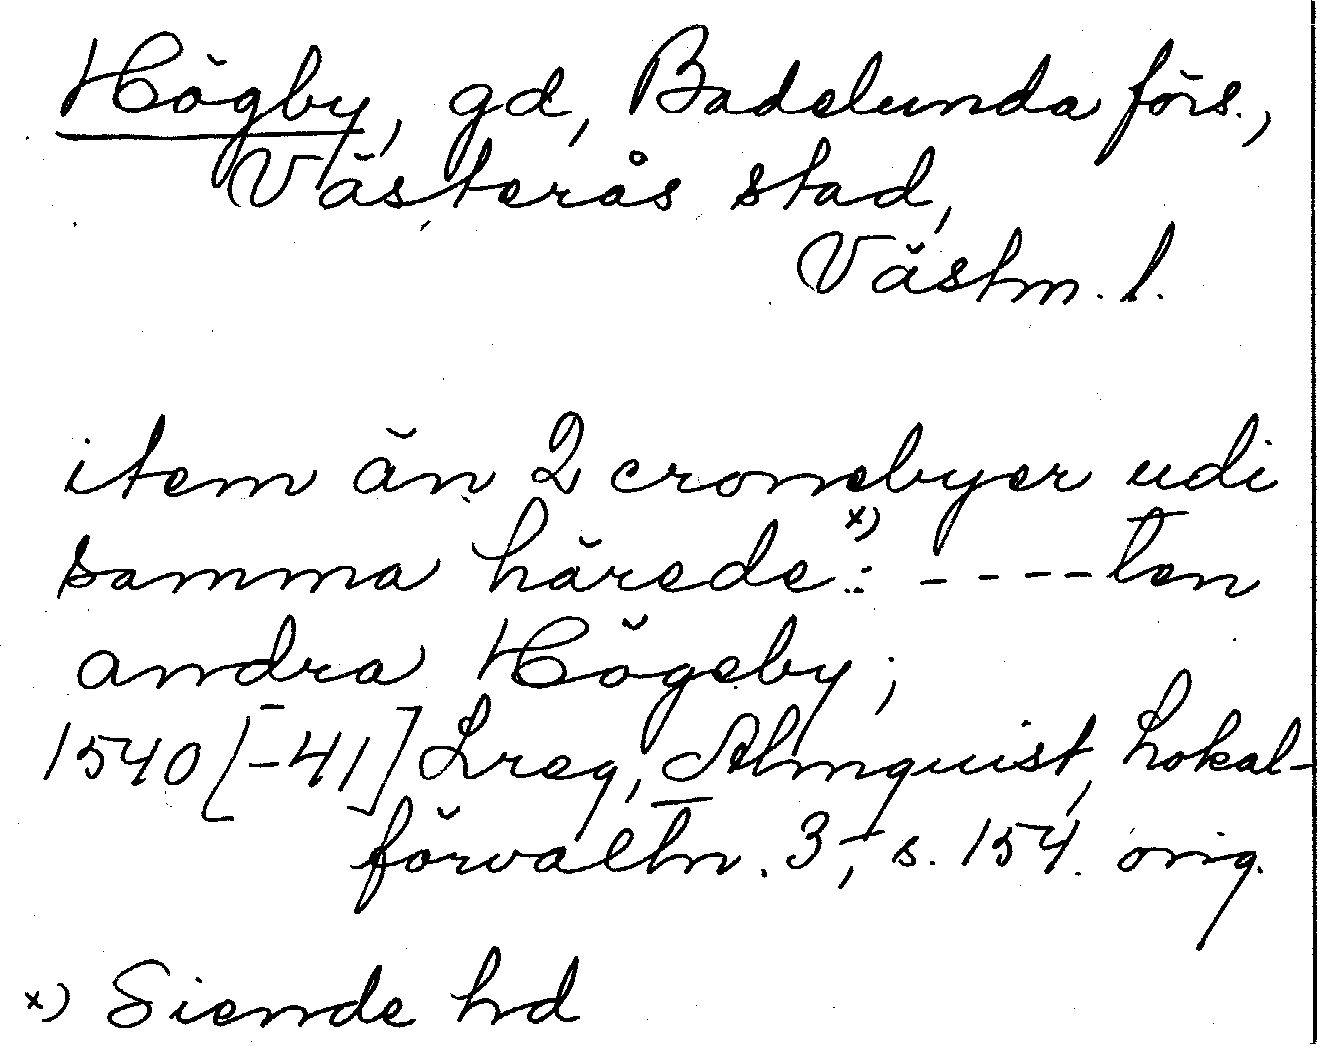 Högby, gd, Badelundaförs.,
Västerås stad,
Västm. l.
item än 2 cronebyer udi
samma härede x): ----ten
andra Högeby;
1540[-41] Lreg, Almquist, Lokal-
förvaltn. 3, s. 154. orig.
x) Siende hd